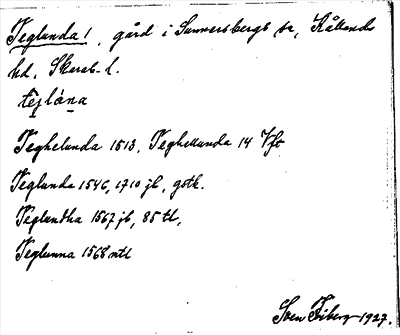 Teglunda 1, gård i Sunnersbergs sn, Kållands
hd, Skarab. l.
tèjlána
Teghelunda 1513, Teghellunda 14 Vfr
Teglunda 1546, 1710 jb, gsth.
Teglundha 1567 jb, 85 tl,
Teglunna 1568 mtl
Sven Friberg 1927.